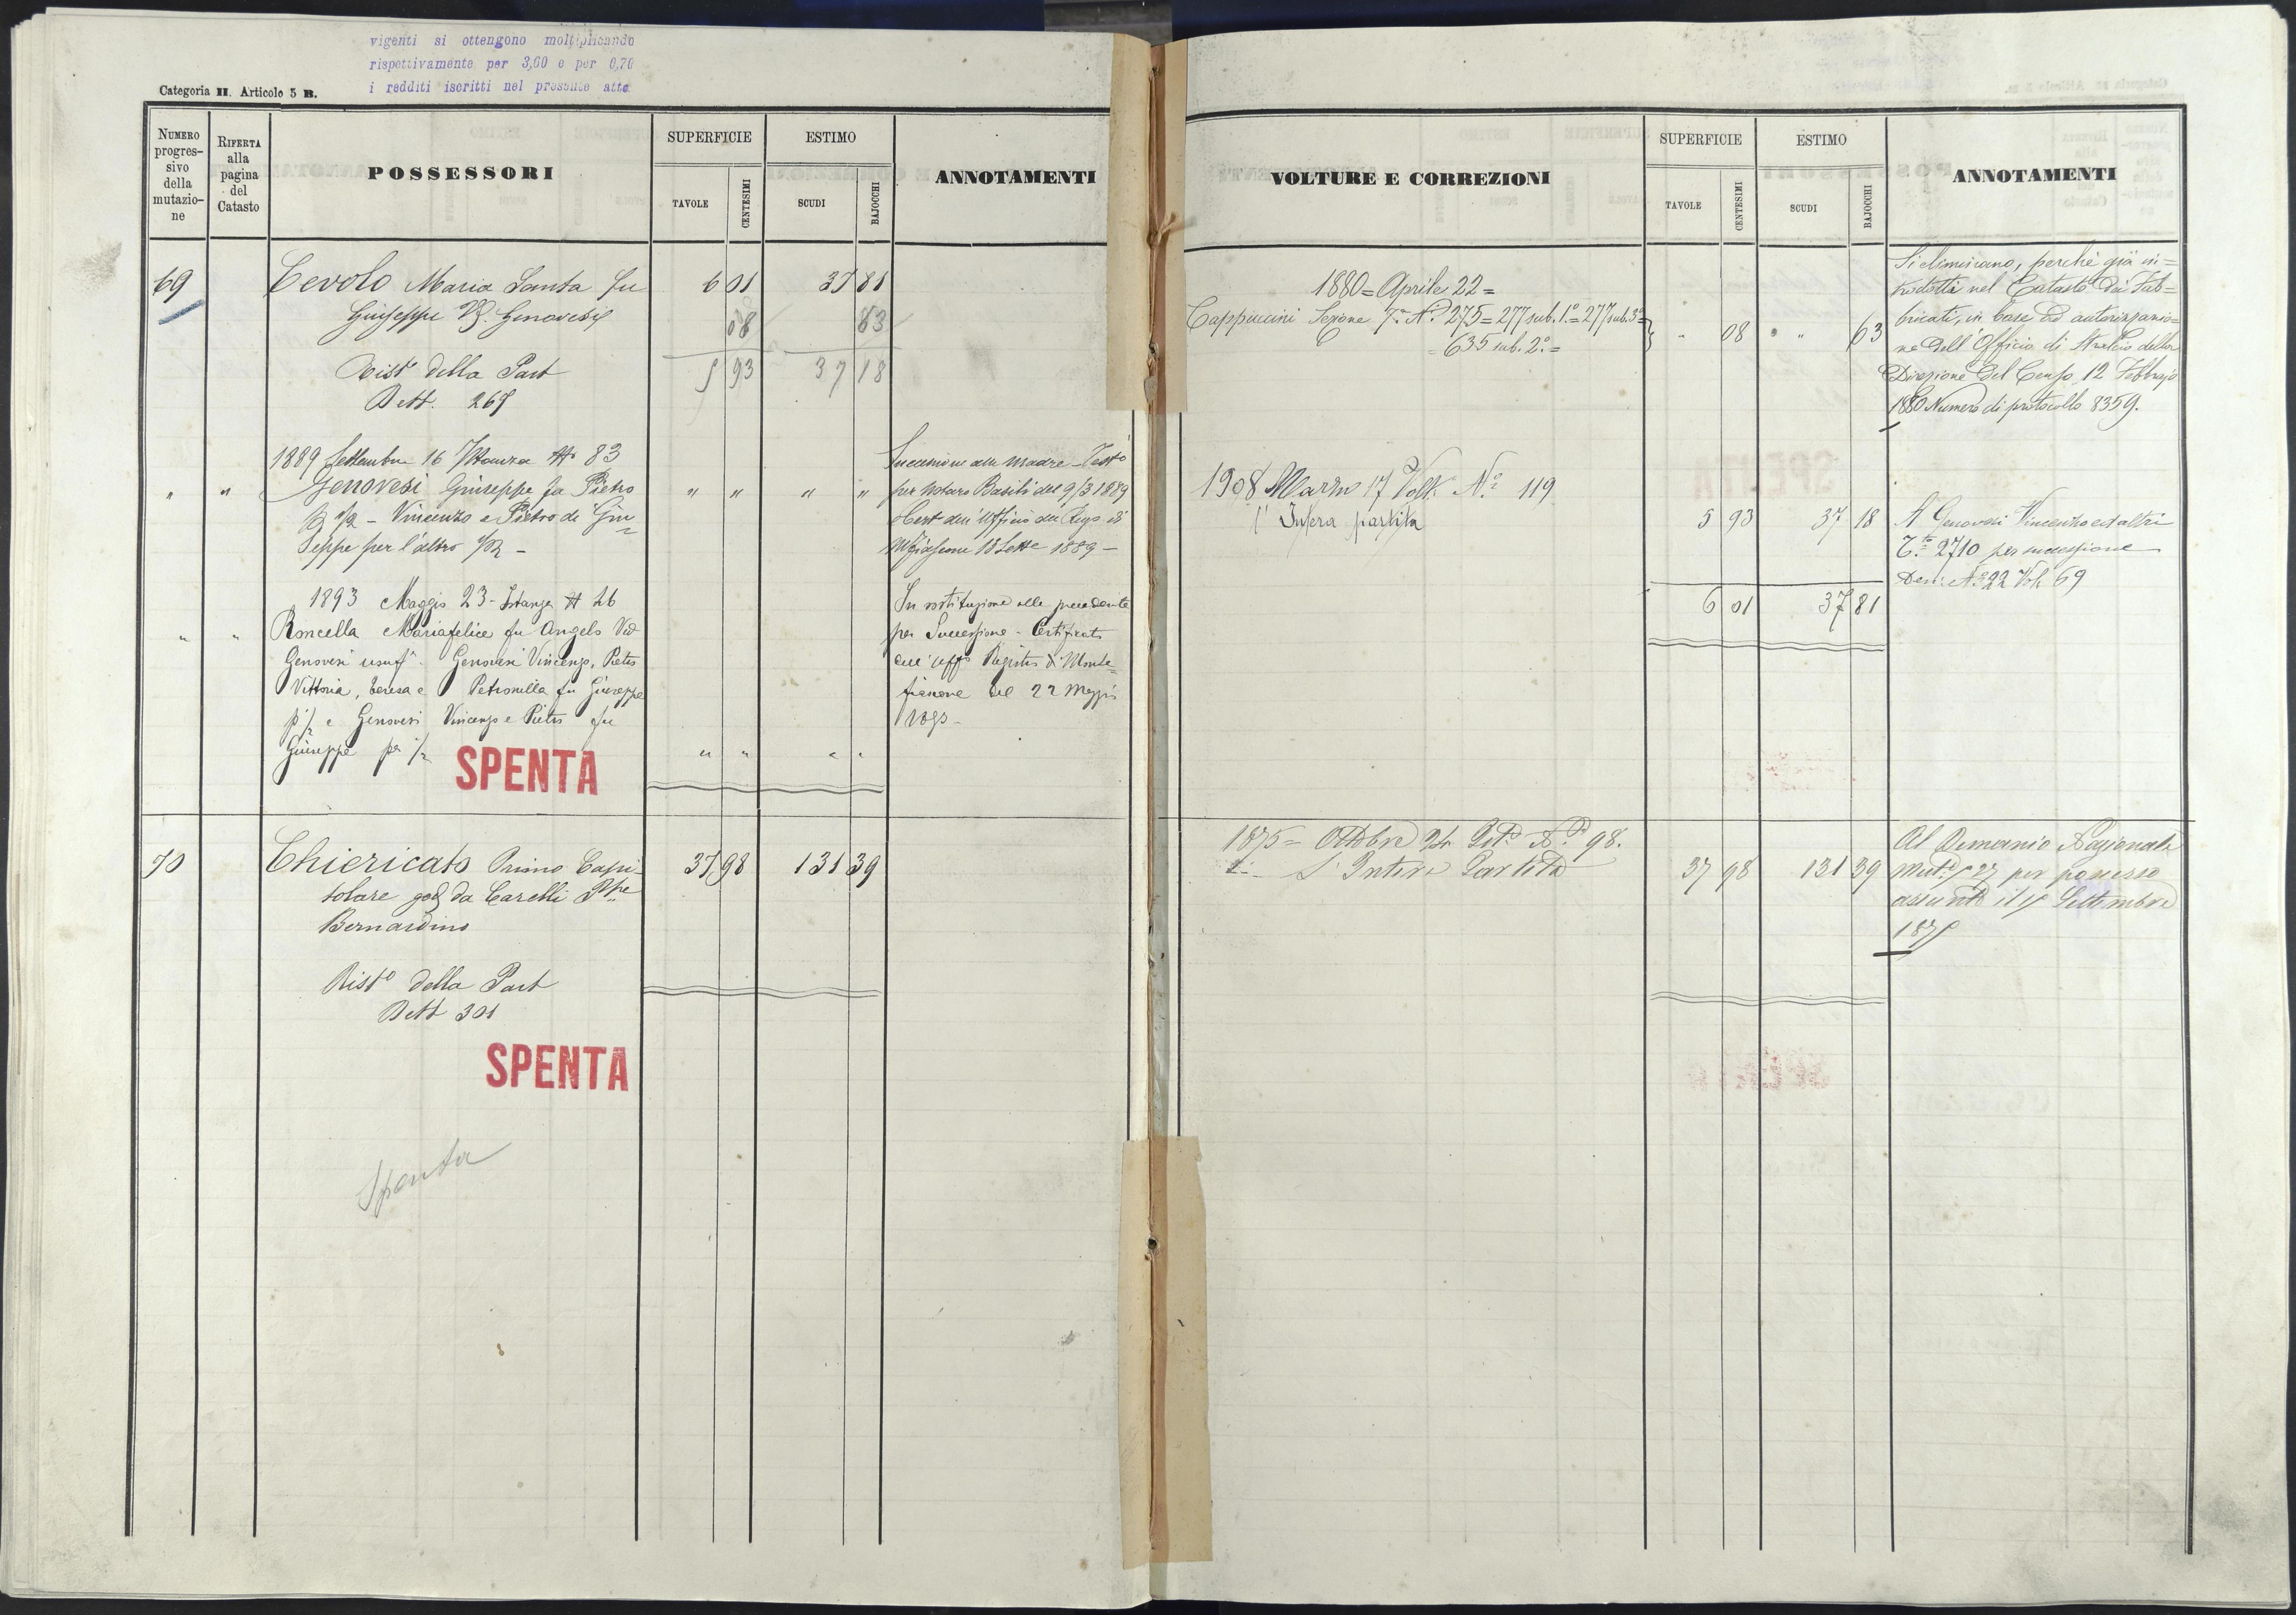 vigenti si ottengono moltiplicando
rispettivamente per 3,60 e per 0,70
i redditi iscritti nel presente atto
Categoria II. Articolo 5 B.
NUMERO
progres-
sivo
della
mutazio-
ne
RIFERTA
alla
pagina
del
Catasto
POSSESSORI
SUPERFICIE
TAVOLE
CENTESIMI
ESTIMO
SCUDI
BAJOCCHI
ANNOTAMENTI
69
Cevolo Maria Santa fu 6 01 37 81
Giuseppe Genovesi 08 63
Rist° della Part 5 93 37 18
Dett. 267
1889 Settembre 16 Istanza N° 83
" " Genovesi Giuseppe fu Pietro " " " "
p 1/2 - Vincenzo e Pietro di Giu
seppe per l'altro 1/2 -
Successione alla madre - Test°
per Notaro Basili del 9/3 1889
Cert dell'Ufficio del Reg° di
Mgiasione 13 Sette 1889 -
1893 Maggio 23 - Istanza N 26
" " Roncella Mariafelice fu Angelo Ved
Genovesi usuf. Genovesi Vincenzo, Pietro
Vittoria, Teresa e Petronilla fu Giuseppe
p 1/2 e Genovesi Vincenzo e Pietro fu
Giuseppe per 1/2 " " " "
In sostituzione alla precedente
per Successione - Certificato
dell'uff° Registro di Monte=
fiascone del 22 Maggio
1893 -
SPENTA
70
Chiericato Primo Capi- 37 98 131 39
tolare god da Carelli
Bernardino
Rist° della Part
Dett 301
SPENTA
Spenta
VOLTURE E CORREZIONI
SUPERFICIE
TAVOLE
CENTESIMI
ESTIMO
SCUDI
BAJOCCHI
ANNOTAMENTI
1880 = Aprile 22 =
Cappuccini Sezione 7ª N° 275 = 277 sub. 1° = 277 sub. 3° = " 08 " 63
= 635 sub. 2° =
Si eliminano, perchè già in=
trodotti nel Catasto dei Fab=
bricati, in base ad autorizzazio=
ne dell'Officio di Stralcio della
Direzione del Censo 12 Febbrajo
1880 Numero di protocollo 8359.
1908 Marzo 17 Volt. N° 119
l'Intera partita 5 93 37 18
A Genovesi Vincenzo ed altri
2710 per successione
Den: N° 22 Vol. 69
6 01 37 81
1875 = Ottobre N° 98.
L'Intera Partita 37 98 131 39
Al Demanio Nazionale
per possesso
assunto il Settembre
1875